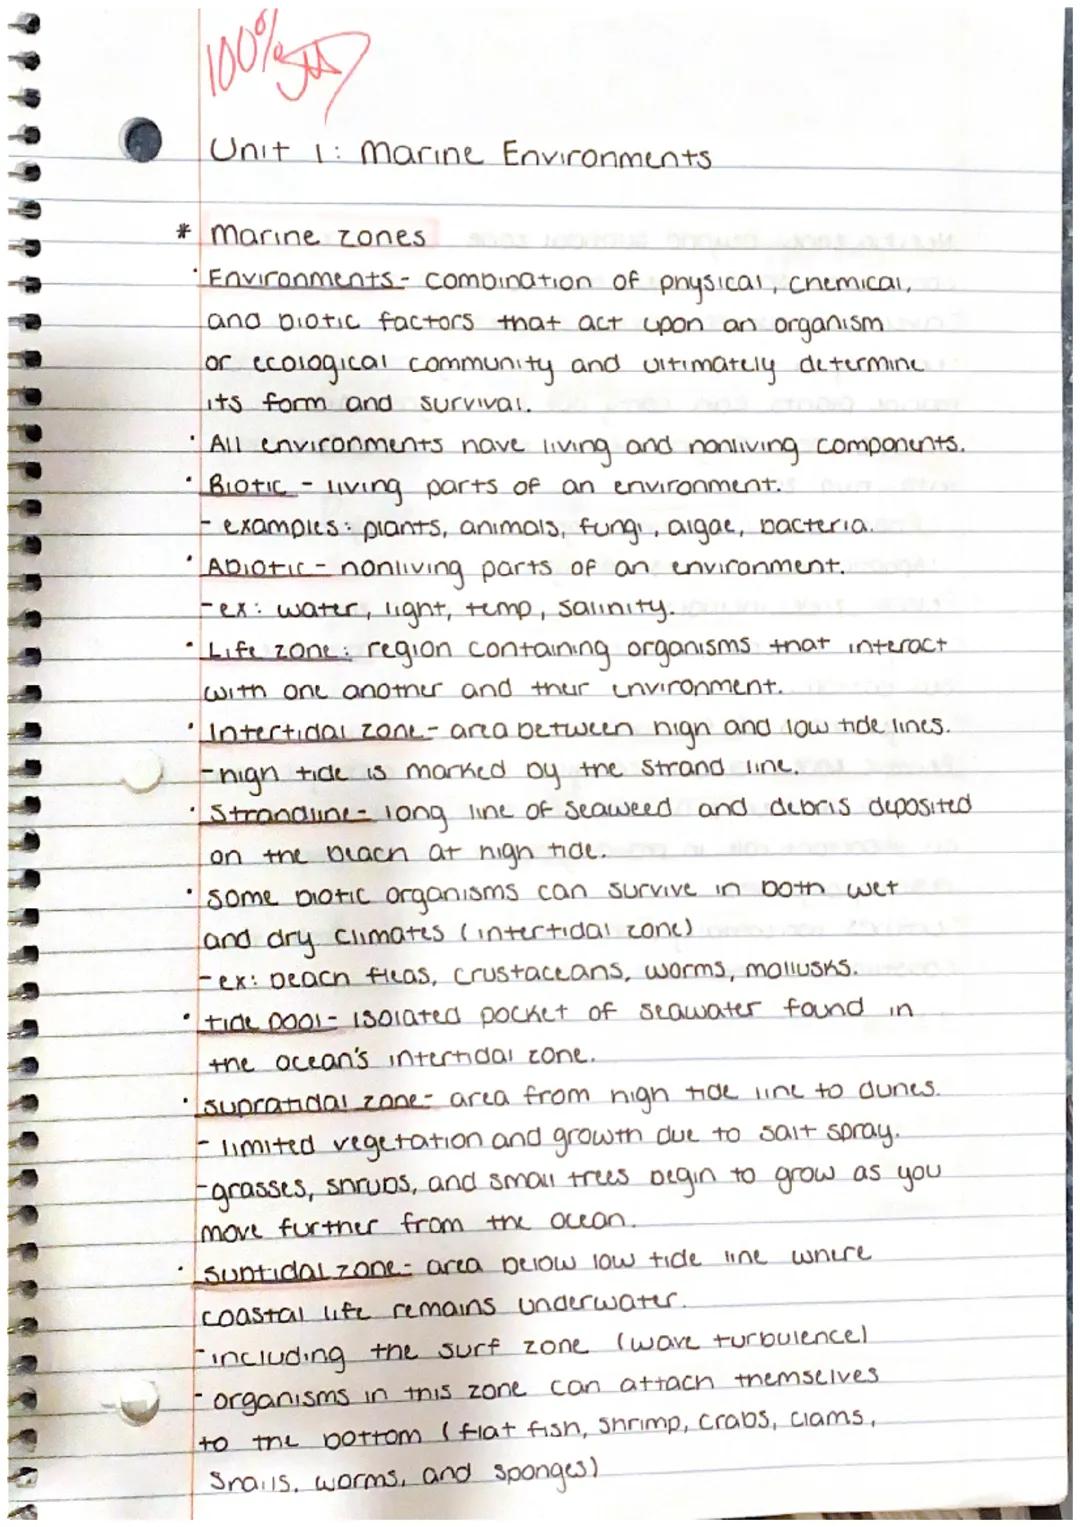 100%
Unit 1: Marine Environments
* Marine zones
· Environments - combination of physical, chemical,
and biotic factors that act upon an organism
or ecological community and ultimately determine
its form and survival.
· All environments have living and nonliving components.
· Biotic - living parts of an environment.
- examples: plants, animals, fungi, algae, bacteria.
· Abiotic - nonliving parts of an environment.
- ex: water, light, temp, salinity.
· Life zone: region containing organisms that interact
with one another and their environment.
· Intertidal zone - area between high and low tide lines.
- high tide is marked by the strand line.
· Strandline - long line of seaweed and debris deposited
on the beach at high tide.
· some biotic organisms can survive in both wet
and dry climates (intertidal zone)
- ex: beach fleas, crustaceans, worms, mollusks.
· tide pool - isolated pocket of seawater found in
the ocean's intertidal zone.
· supratidal zone - area from high tide line to dunes.
- limited vegetation and growth due to salt spray.
- grasses, shrubs, and small trees begin to grow as you
move further from the ocean.
· subtidal zone - area below low tide line where
coastal life remains underwater.
- including the surf zone (wave turbulence)
- organisms in this zone can attach themselves
to the bottom (flat fish, shrimp, crabs, clams,
snails, worms, and sponges)